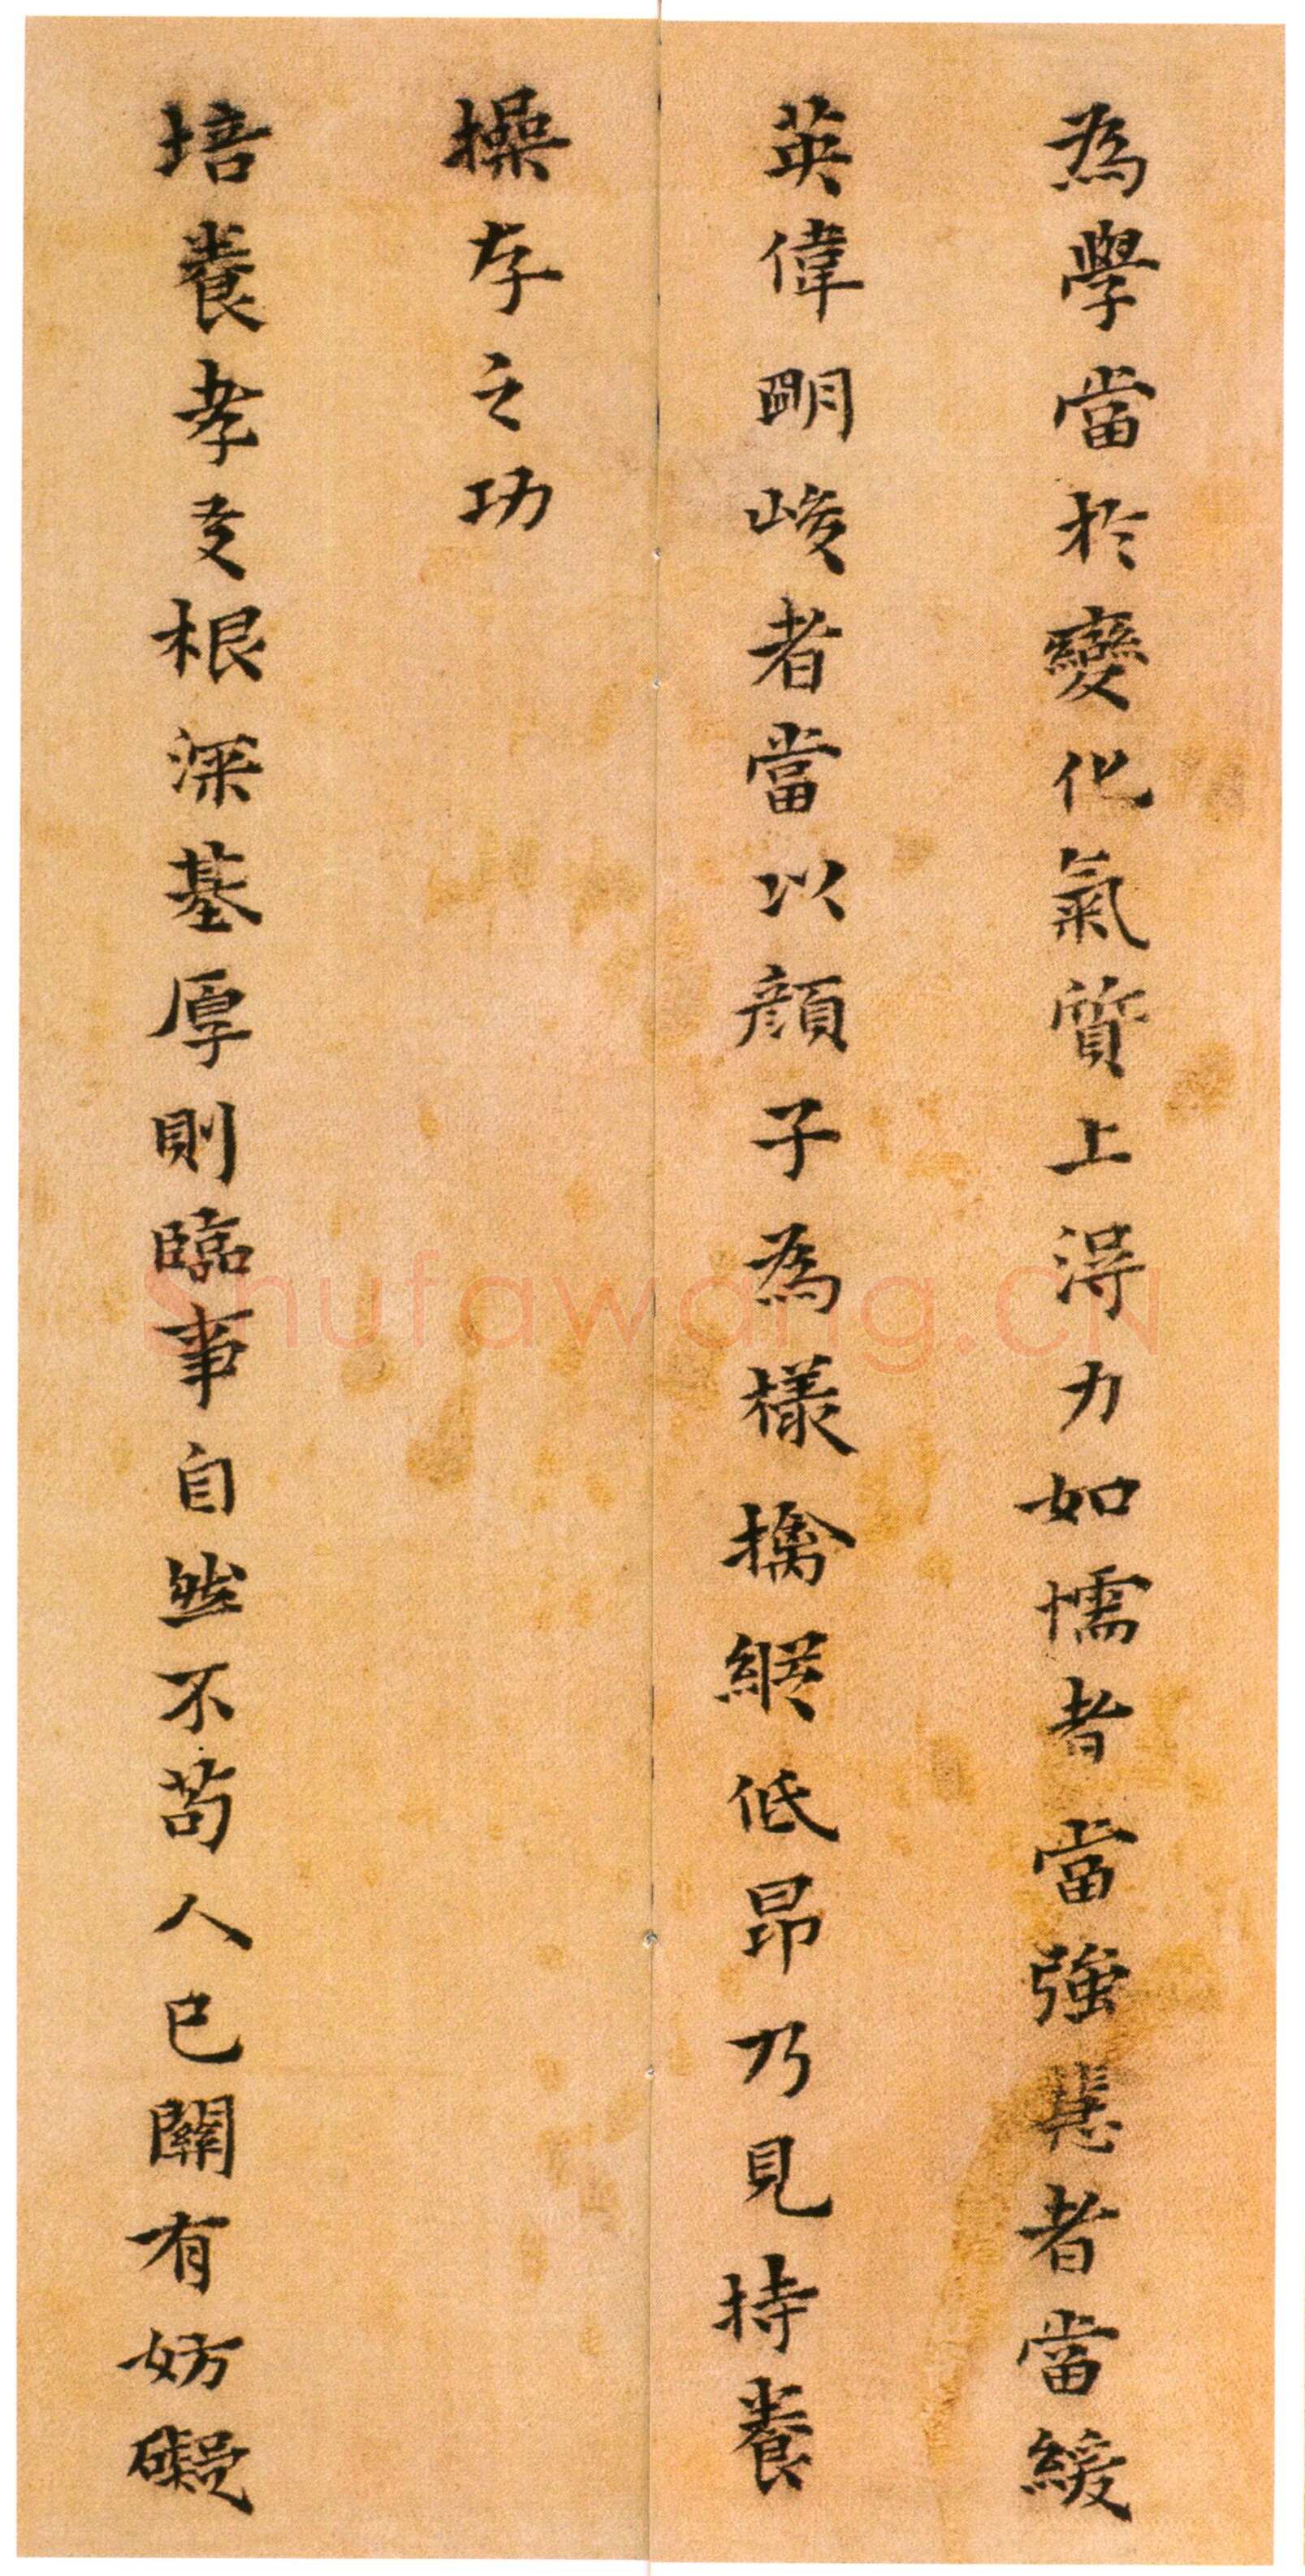 為學當於變化氣質上得力如懦者當強急者當緩
英偉明峻者當以顏子為樣擒縱低昂乃見持養
操存之功
培養孝友根深基厚則臨事自然不苟人已關有妨礙
shufawang.CN